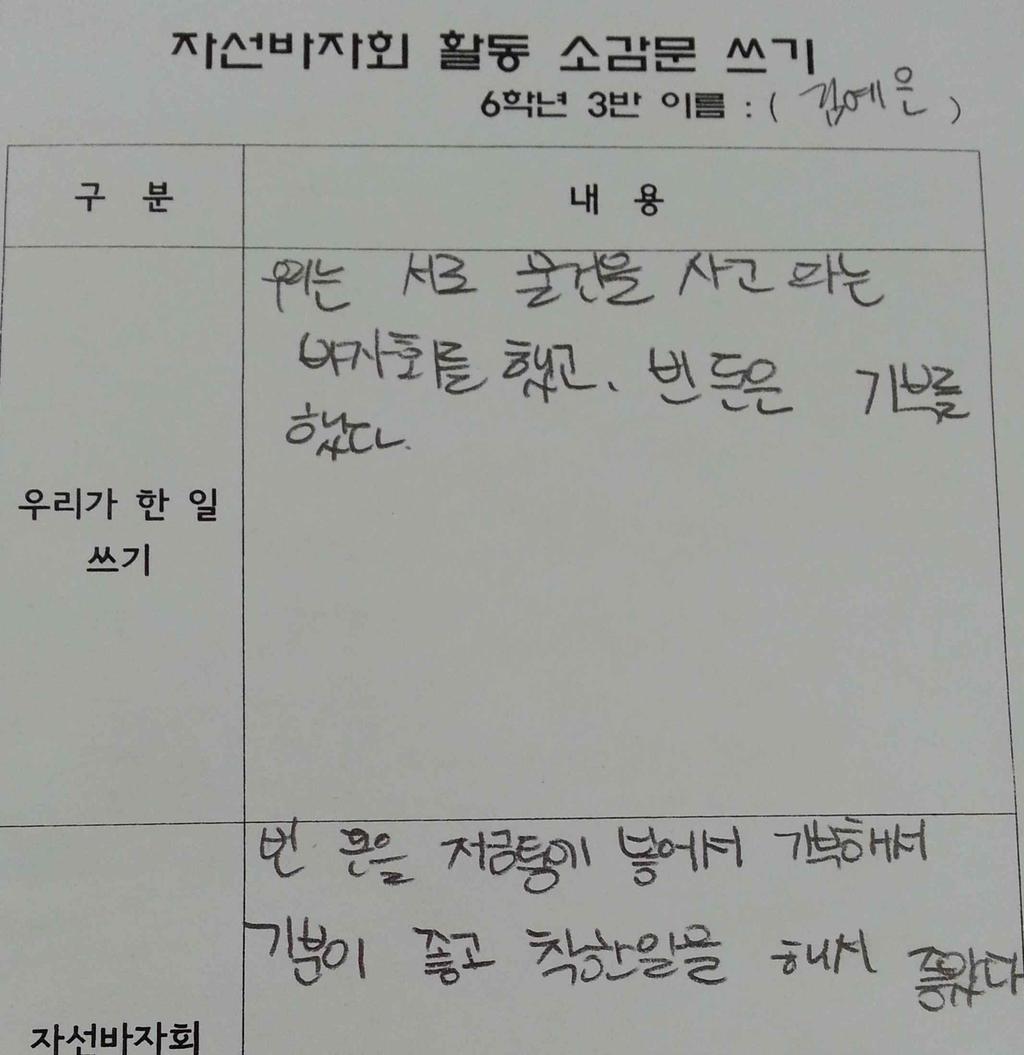 자선바자회 활동 소감문 쓰기
6학년 3반 이름 : ( 김예은 )
구 분
내 용
우리는 서로 물건을 사고 파는
바자회를 했고, 번 돈은 기부를
했다.
우리가 한 일
쓰기
번 돈을 저금통에 넣어서 기부해서
기분이 좋고 착한일을 해서 좋았다
자선바자회